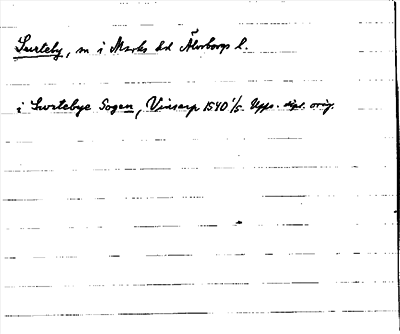 Surteby, sn i Marks hd Älvsborgs l.
i Swrtebye Sogen, Vinsarp 1540 1/5 Upps. dipl. orig.